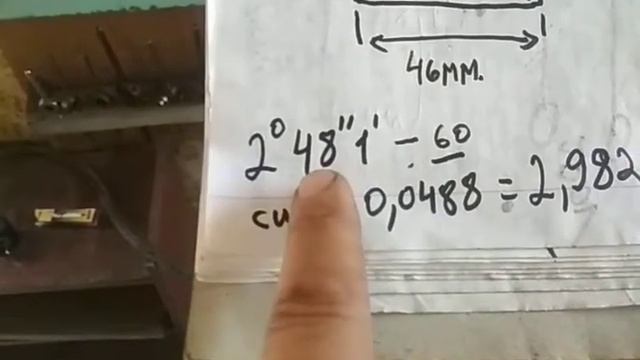 46мм.
2° 48" 1' ÷ 60
0,0488 = 2,982